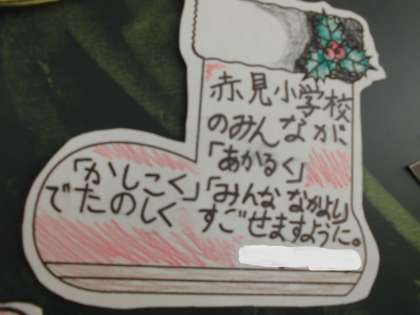 赤見小学校
のみんなが
「あかるく」
「かしこく」「みんな なかよし」
でたのしく すごせますように。